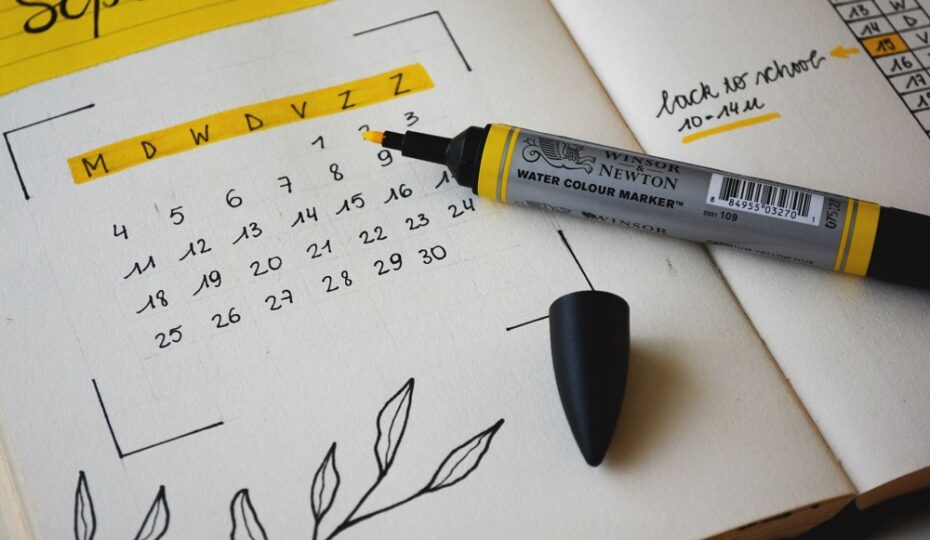 M D W D V Z Z
1 2 3
4 5 6 7 8 9
11 12 13 14 15 16
18 19 20 21 22 23 24
25 26 27 28 29 30
WINSOR
&
NEWTON
WATER COLOUR MARKER™
8 84955 03270 1
109
WINSOR
back to school
10-14u
13 W
14 D
15 V
16
17